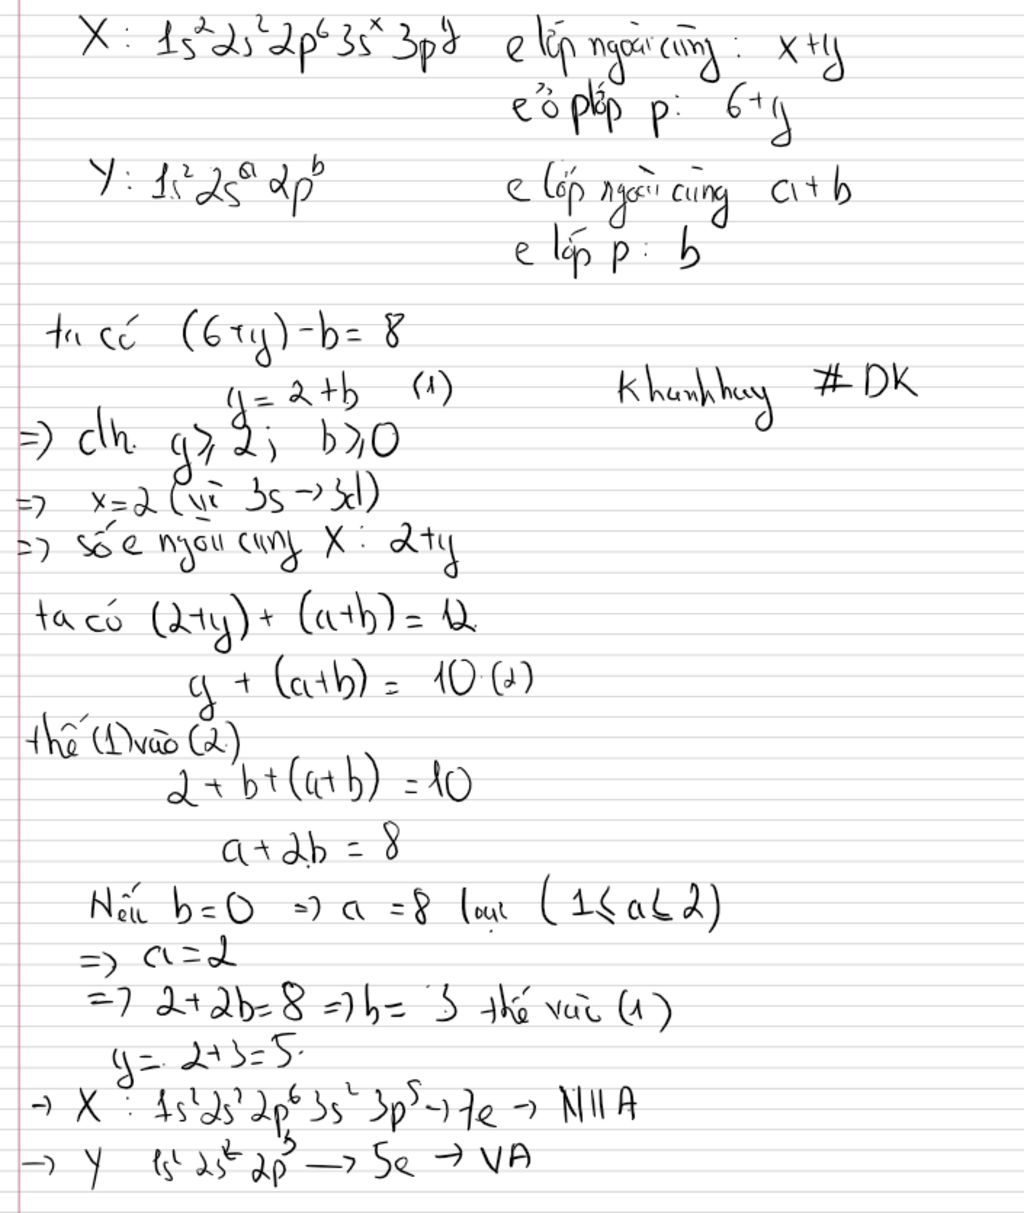 X : 1s²2s²2p⁶3sˣ3pʸ e lớp ngoài cùng : x+y
e ở plớp p: 6+y
Y: 1s²2sᵃ2pᵇ e lớp ngoài cùng a+b
e lớp p : b
ta có (6+y)-b= 8
y= 2+b (1) Khanhhuy # DK
=> đk. y≥2; b≥0
=> x=2 (vì 3s→3d)
=> số e ngoài cùng X : 2+y
ta có (2+y)+ (a+b)= 12
y + (a+b) = 10 (2)
thế (1) vào (2)
2 + b+(a+b) =10
a+2b = 8
Nếu b=0 => a =8 loại (1≤a≤2)
=> a=2
=> 2+2b=8 =>b= 3 thế vào (1)
y= 2+3=5.
→ X : 1s²2s²2p⁶3s²3p⁵→7e → NIIA
→ Y 1s²2s²2p³ → 5e → VA